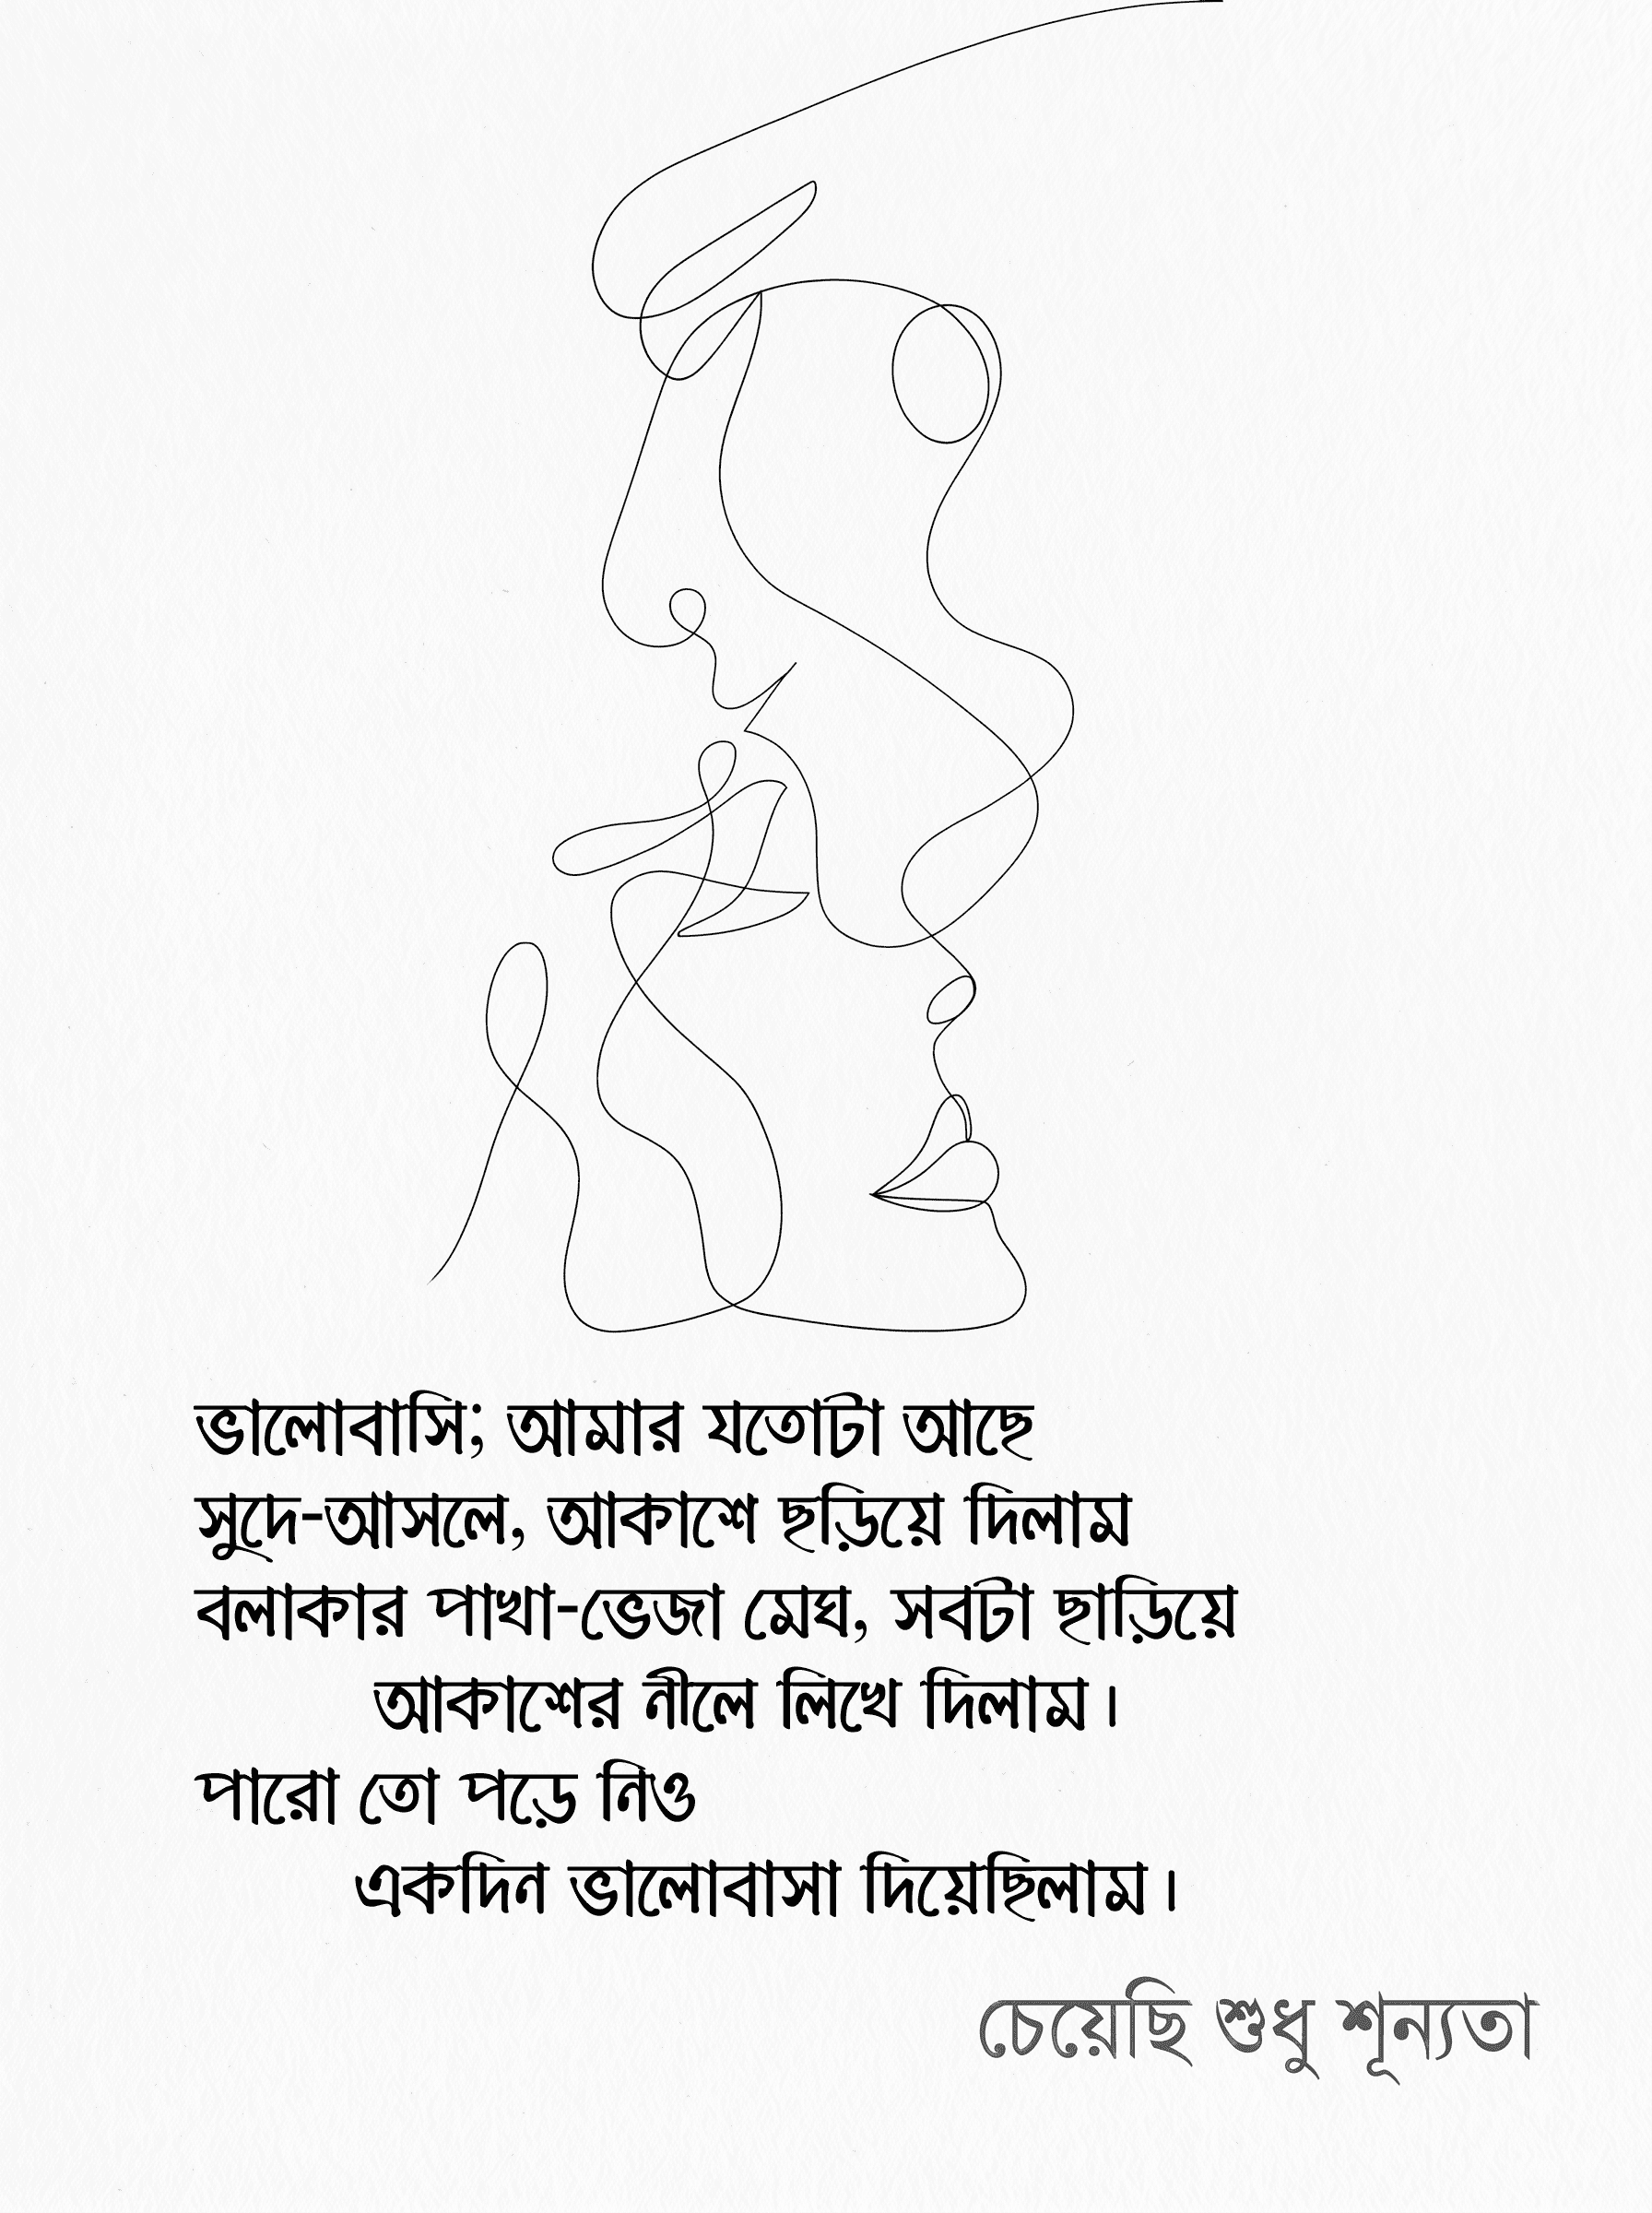 ভালোবাসি; আমার যতোটা আছে
সুদে-আসলে, আকাশে ছড়িয়ে দিলাম
বলাকার পাখা-ভেজা মেঘ, সবটা ছাড়িয়ে
আকাশের নীলে লিখে দিলাম।
পারো তো পড়ে নিও
একদিন ভালোবাসা দিয়েছিলাম।
চেয়েছি শুধু শূন্যতা